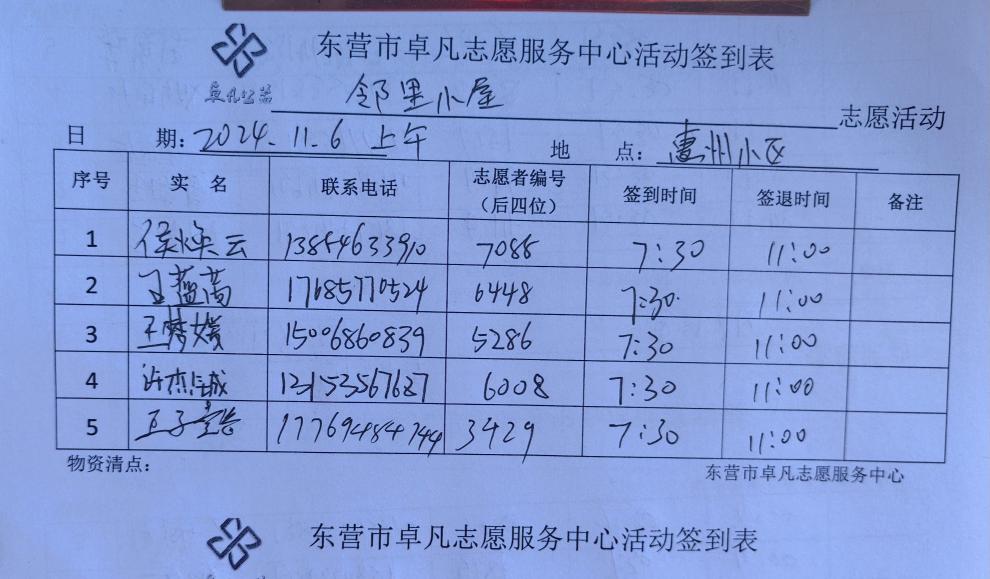 东营市卓凡志愿服务中心活动签到表
卓凡公益 邻里小屋 志愿活动
日 期：2024.11.6 上午 地 点：惠州小区
序号 实 名 联系电话 志愿者编号（后四位） 签到时间 签退时间 备注
1 侯焕云 13854633910 7085 7:30 11:00
2 王蕴蒿 17685770524 6448 7:30 11:00
3 王梦媛 15006860839 5286 7:30 11:00
4 许杰诚 6008 7:30 11:00
5 王子 17769484744 3429 7:30 11:00
物资清点： 东营市卓凡志愿服务中心
东营市卓凡志愿服务中心活动签到表